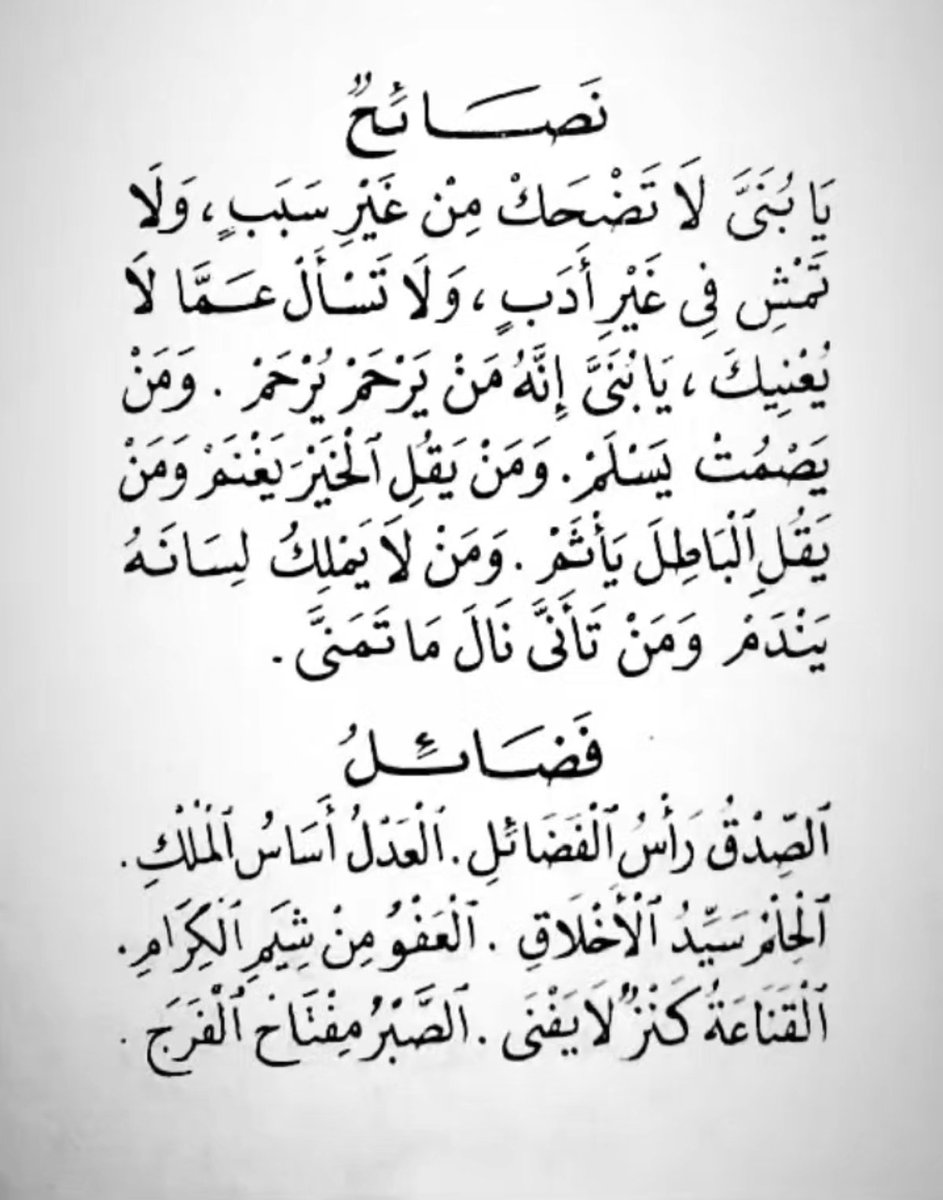 نَصَائِحٌ
يَا بُنَىَّ لَا تَضْحَكْ مِنْ غَيْرِ سَبَبٍ ، وَلَا
تَمْشِ فِى غَيْرِ أَدَبٍ ، وَلَا تَسْأَلْ عَمَّا لَا
يُعْنِيكَ ، يَا بُنَىَّ إِنَّهُ مَنْ يَرْحَمْ يُرْحَمْ . وَمَنْ
يَصْمُتْ يَسْلَمْ . وَمَنْ يَقُلِ ٱلْخَيْرَ يَغْنَمْ وَمَنْ
يَقُلِ ٱلْبَاطِلَ يَأْثَمْ . وَمَنْ لَا يَمْلِكُ لِسَانَهُ
يَنْدَمْ وَمَنْ تَأَنَّى نَالَ مَا تَمَنَّى .
فَضَائِلُ
ٱلصِّدْقُ رَأْسُ ٱلْفَضَائِلِ . ٱلْعَدْلُ أَسَاسُ ٱلْمُلْكِ .
ٱلْحِلْمُ سَيِّدُ ٱلْأَخْلَاقِ . ٱلْعَفْوُ مِنْ شِيَمِ ٱلْكِرَامِ .
ٱلْقَنَاعَةُ كَنْزٌ لَا يَفْنَى . ٱلصَّبْرُ مِفْتَاحُ ٱلْفَرَجَ .